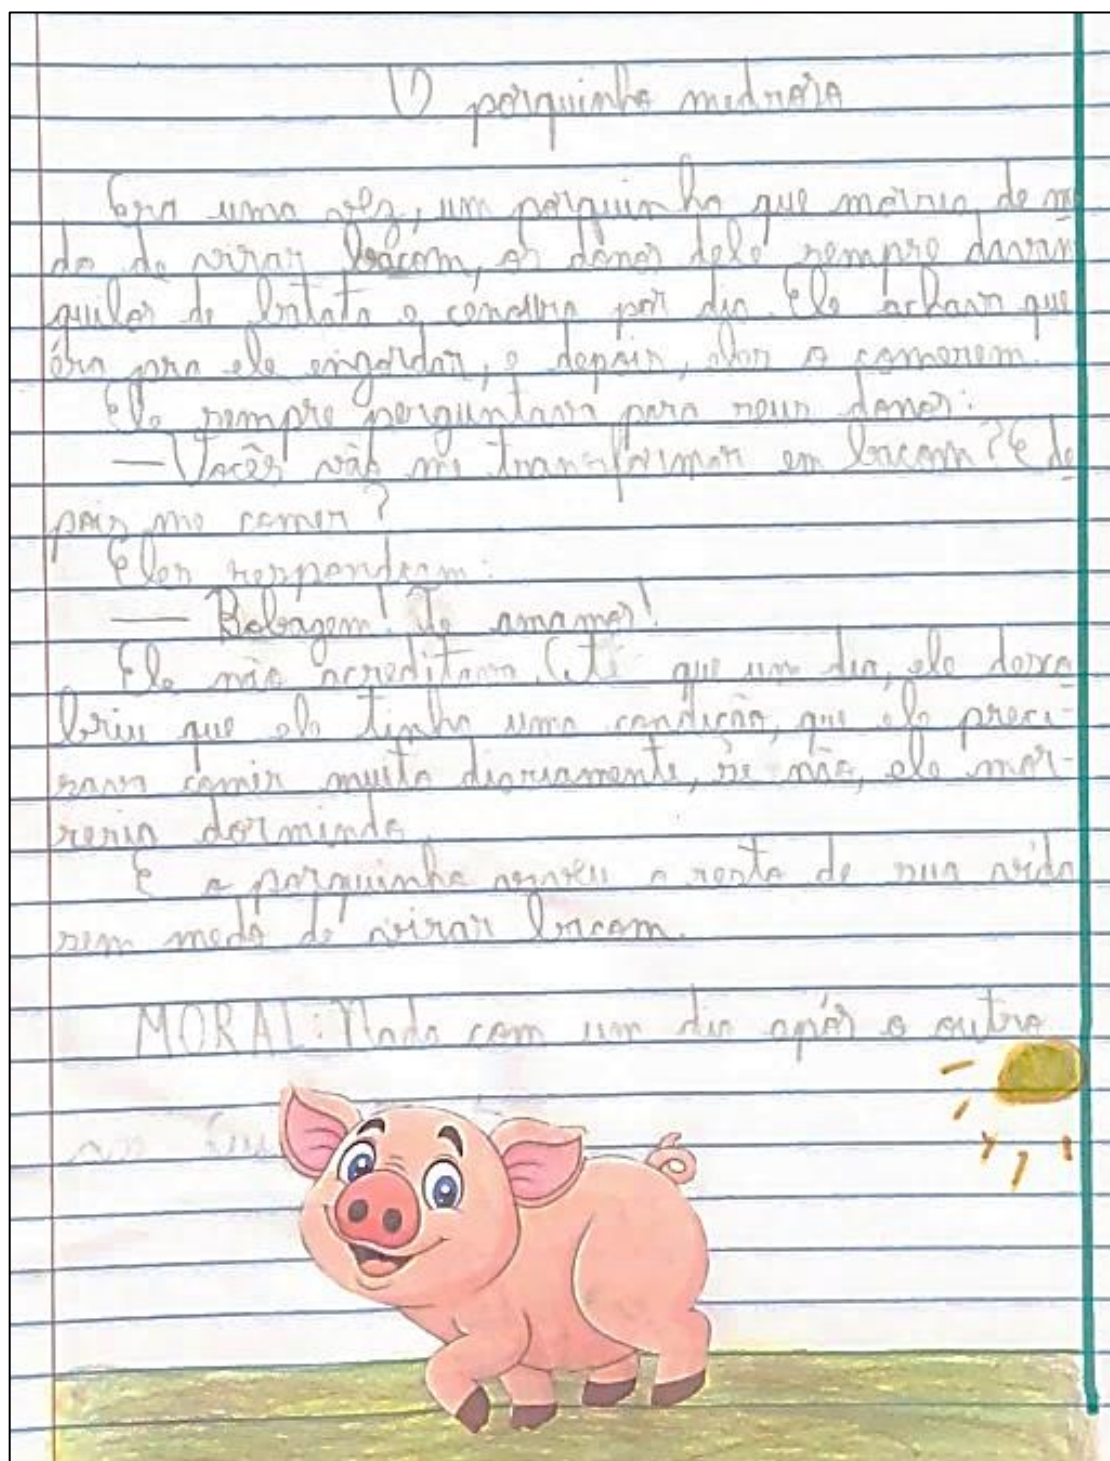 O porquinho medroso
Era uma vez, um porquinho que morria de me
do de virar bacom, os donos dele sempre davam
quilos de batata e cenoura por dia. Ele achava que
éra pra ele engordar, e depois, elos o comerem.
Ele sempre perguntava para seus donos:
— Vocês vão me transformar em bacom? E de
pois me comer?
Eles respondiam:
— Bobagem! Te amamos!
Ele não acreditava. Até que um dia, ele desco
briu que ele tinha uma condição, que ele preci-
sava comer muito diariamente, se não, ele mor-
reria dormindo.
E o porquinho viveu o resto de sua vida
sem medo de virar bacom.
MORAL: Nada com um dia após o outro